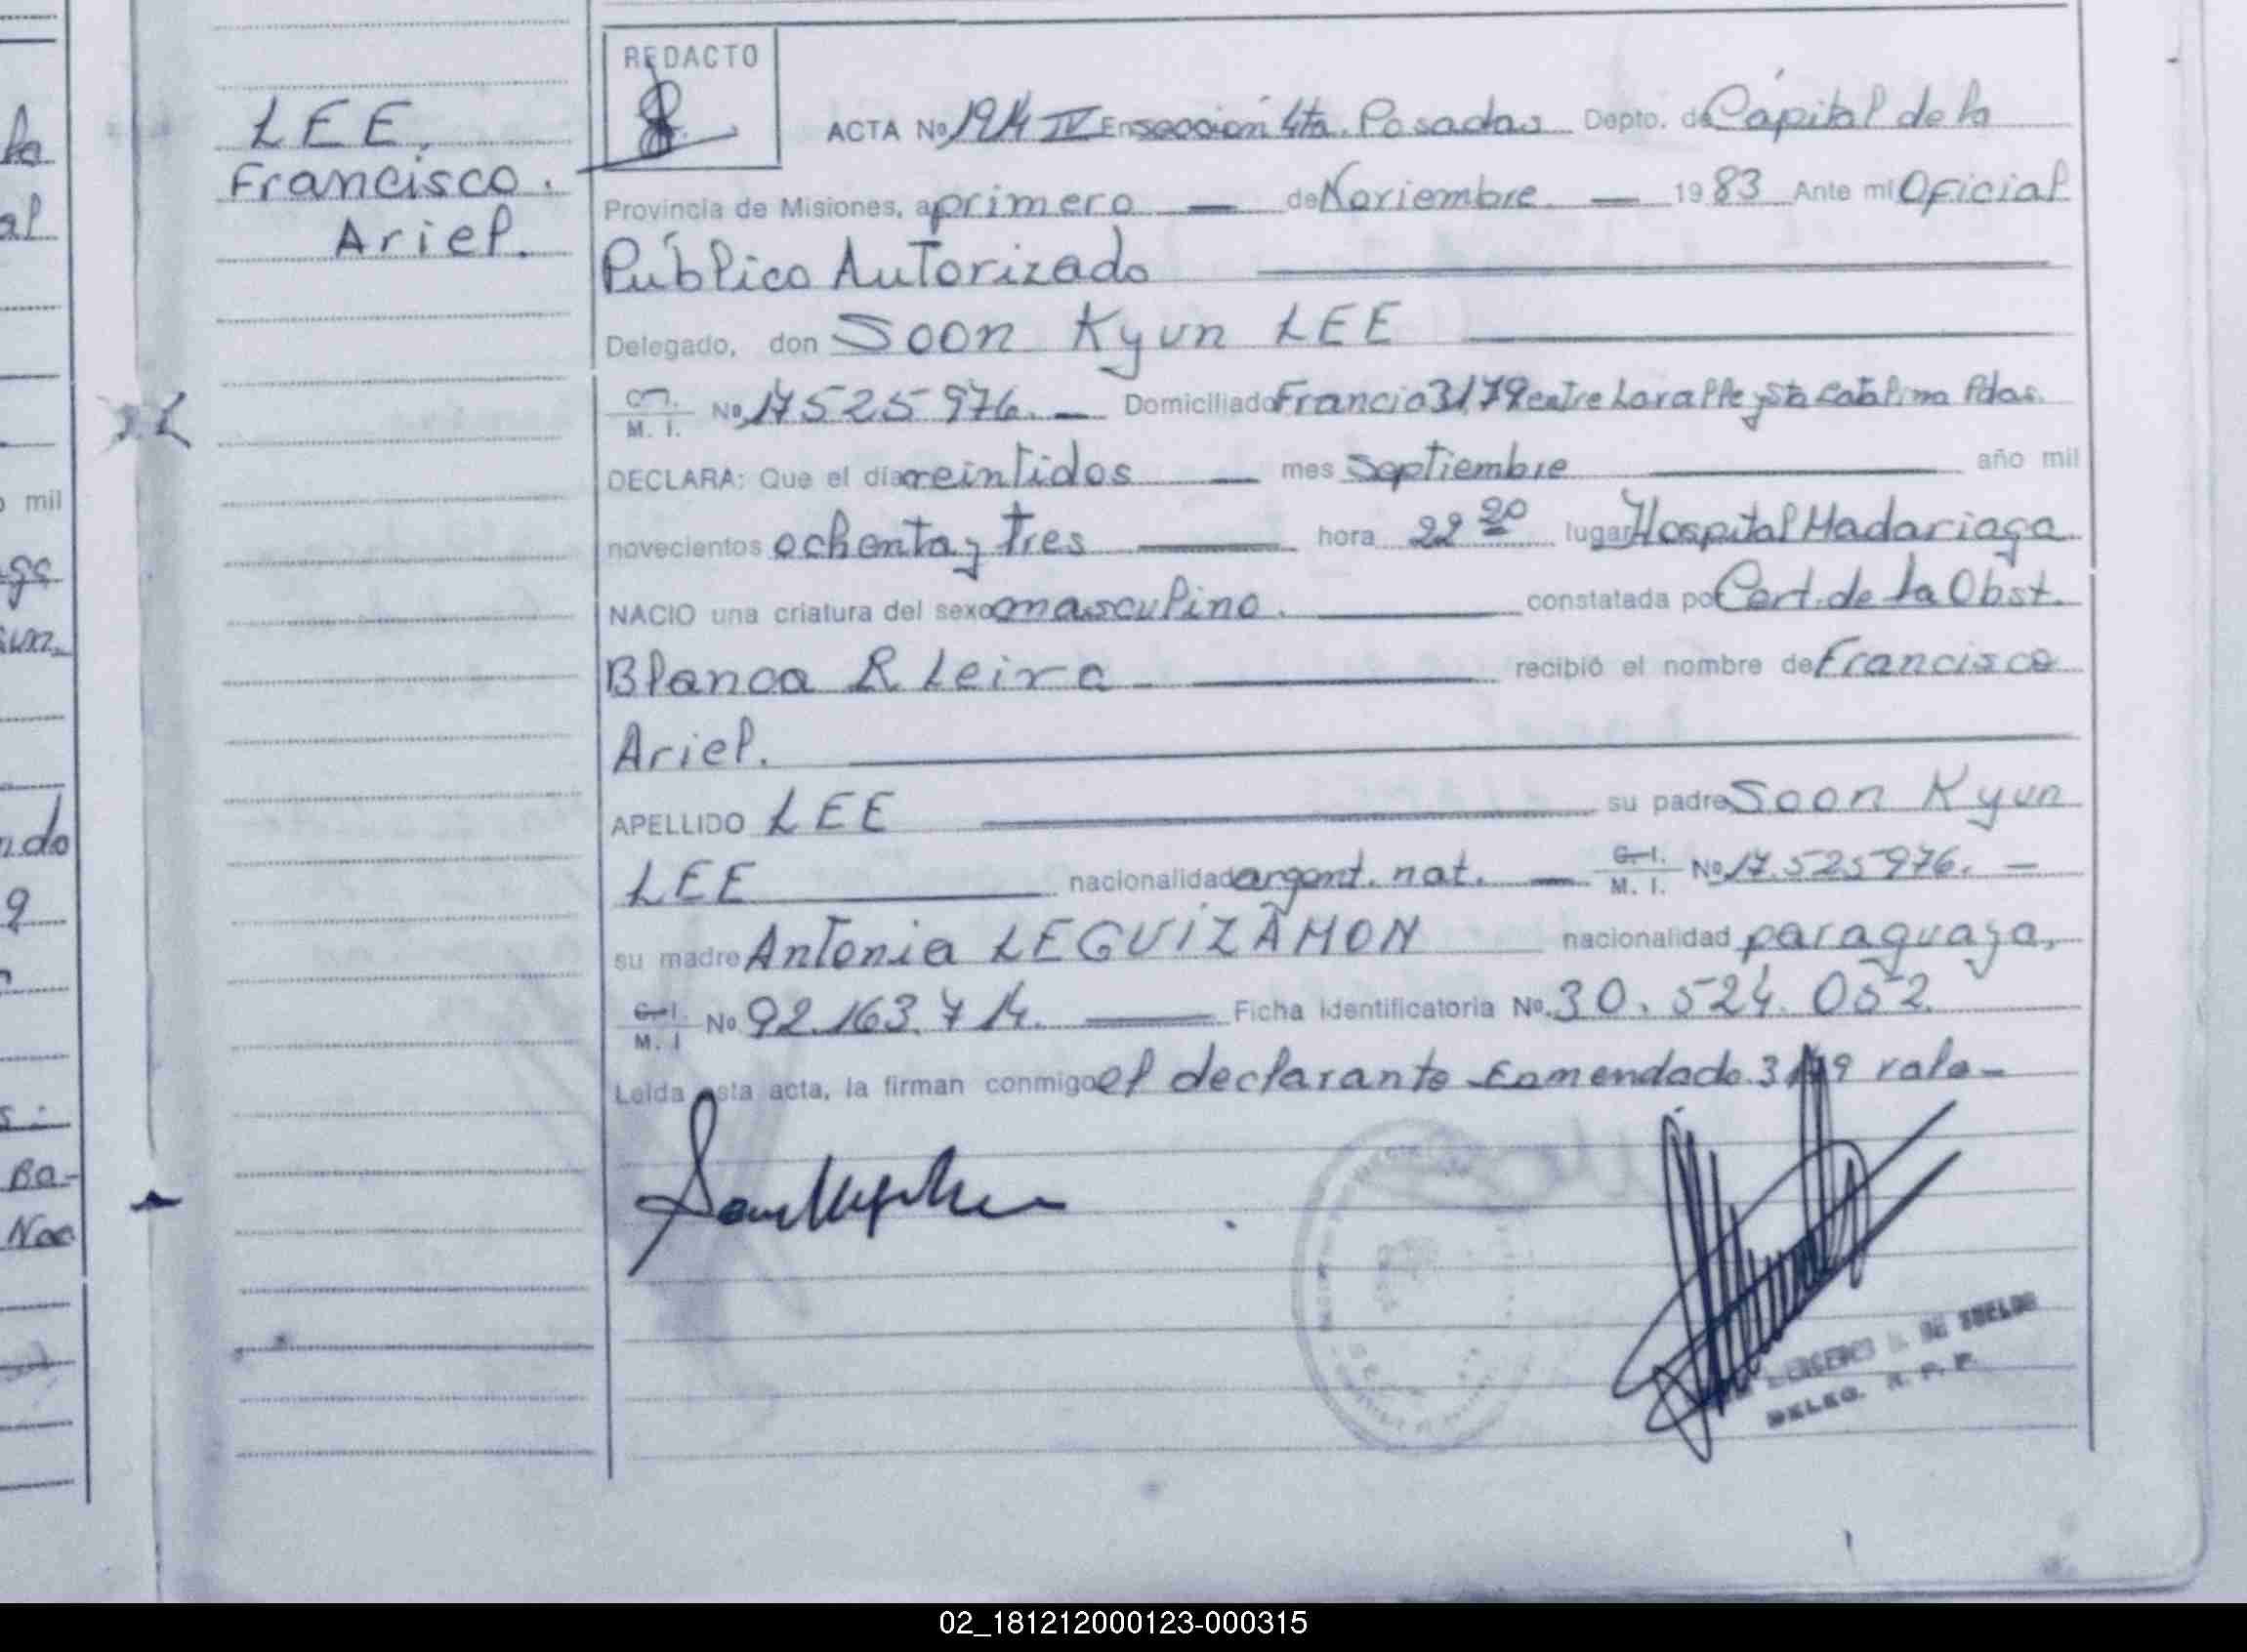 LEE,
Francisco.
Ariel.
REDACTO
ACTA No 1914 IV En sección 4ta. Posadas Depto. de Cápital de la
Provincia de Misiones, a primero — de Noviembre — 1983 Ante mi Oficial
Público Autorizado
Delegado, don Soon Kyun LEE
M. I. No 17525976. — Domiciliado Francia 3179 entre Lavalle y Sta Catalina Pdas.
DECLARA: Que el día veintidos — mes septiembre — año mil
novecientos ochenta y tres — hora 22 20 lugar Hospital Madariaga
NACIO una criatura del sexo masculino. — constatada po Cert. de la Obst.
Blanca R Leiva — recibió el nombre de Francisco
Ariel.
APELLIDO LEE — su padre Soon Kyun
LEE — nacionalidad argent. nat. — C. I. M. I. No 17.525976. —
su madre Antonia LEGUIZAMON nacionalidad paraguaya,
C. I. M. I No 92.163.714. — Ficha Identificatoria No. 30.524.052.
Leída esta acta, la firman conmigo el declarante Enmendado 3179 vale —
DELEG. R. P. P.
la
al
mil
ndo
9
Ba-
Nac
02_181212000123-000315